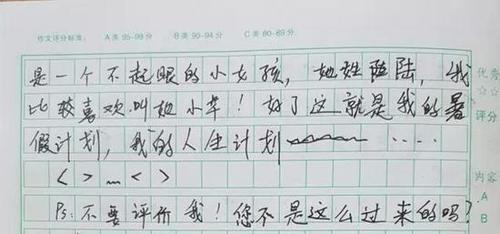 作文评分标准： A类 95-99分 B类 90-94分 C类 80-89分
是一个不起眼的小女孩，她姓陆，我
比较喜欢叫她小草！好了这就是我的暑
假计划，我的人生计划～～～ ····
< > … < >
Ps：不要评价我！您不是这么过来的吗？
优秀
☆☆
评分
内容
A
B